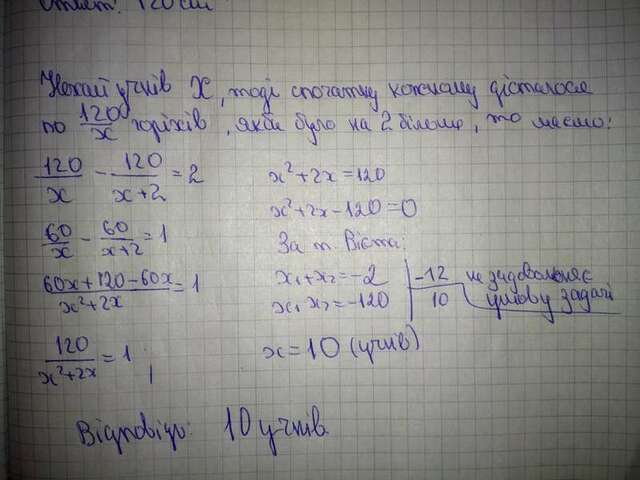 Ответ: 120 см
Нехай учнів X, тоді спочатку кожному дісталося
по 120/x горіхів, якби було на 2 більше, то маємо:
120/x - 120/(x+2) = 2
60/x - 60/(x+2) = 1
(60x+120-60x)/(x²+2x) = 1
120/(x²+2x) = 1;
x²+2x=120
x²+2x-120=0
За т. Вієта:
x₁+x₂=-2
x₁·x₂=-120
-12 не задовольняє
10 умову задачі
x=10 (учнів)
Відповідь: 10 учнів.